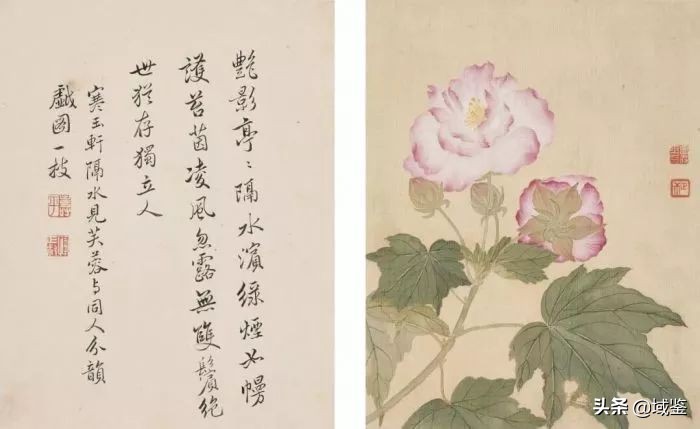 艷影亭〻隔水濱綠煙如幔
護苔茵凌風忽露無雙鬢絕
世猶存獨立人
寒玉軒隔水見芙蓉与同人分韻
戲圖一枝
头条 @域鉴